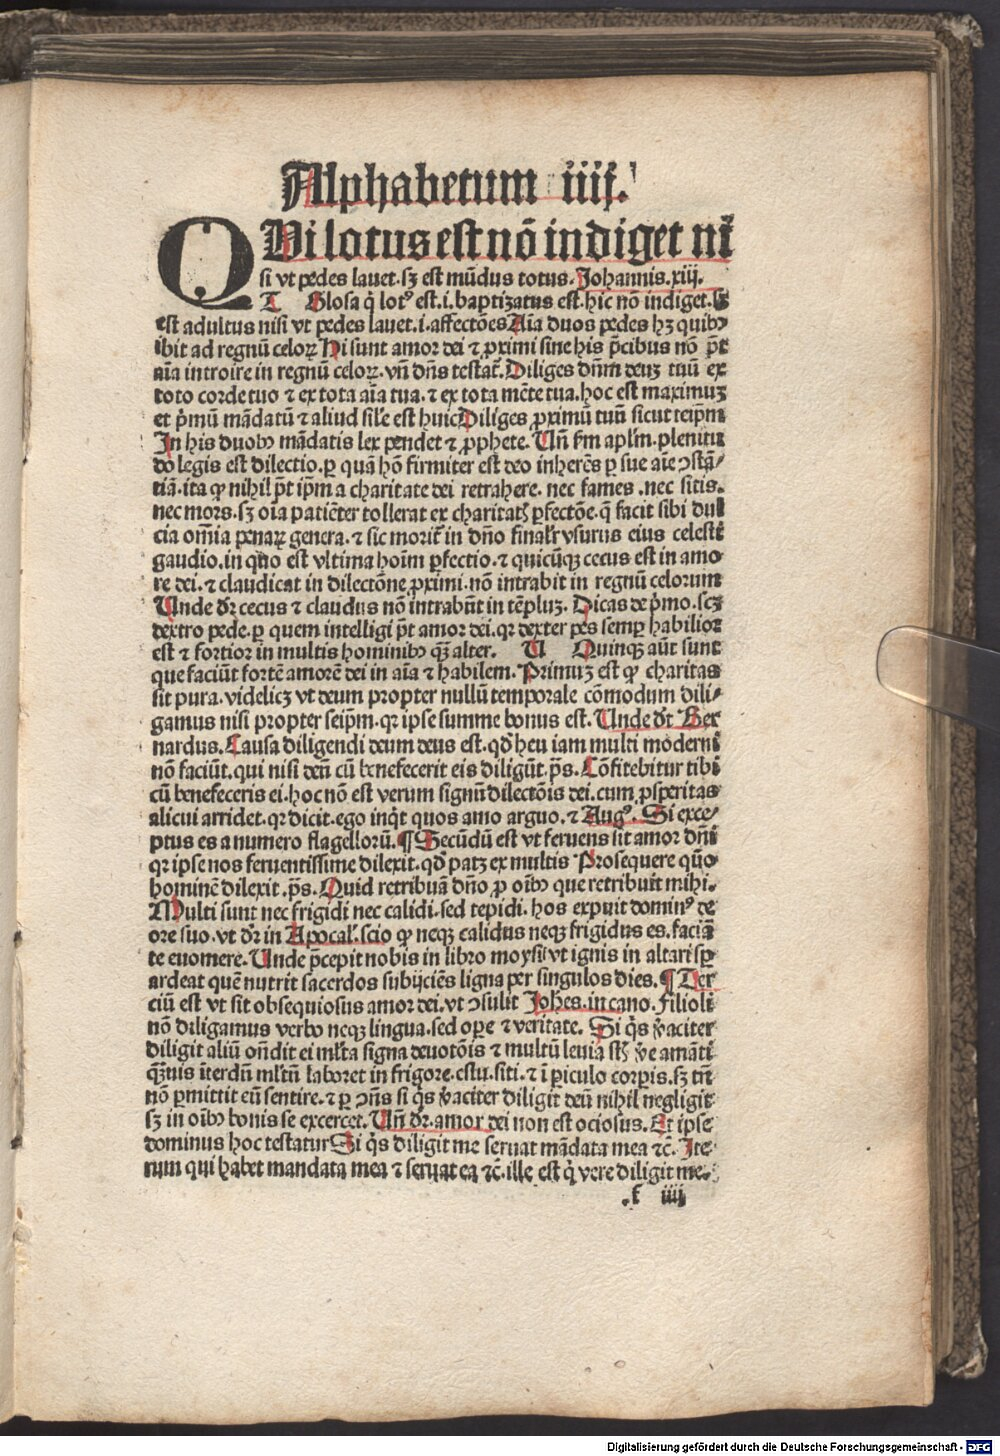 Alphabetum iiij.
QUi lotus est nõ indiget ni
si vt pedes lauet. sꝫ est mũdus totus. Johannis. xiij.
T Glosa q̇ lotꝰ est. i. baptizatus est. hic nõ indiget. sꝫ
est adultus nisi vt pedes lauet. i. affectões Aĩa duos pedes hꝫ quibꝰ
ibit ad regnũ celoꝝ Hi sunt amor dei ⁊ ꝓximi sine his p̄cibus nõ p̄t
aĩa introire in regnũ celoꝝ. vñ dñs testat̃. Diliges dñm deuꝫ tuũ ex
toto corde tuo ⁊ ex tota aĩa tua. ⁊ ex tota mẽte tua. hoc est maximuꝫ
et p̊mũ mãdatũ ⁊ aliud sil̃e est huic Diliges ꝓximũ tuũ sicut teip̃m
In his duobꝰ mãdatis lex pendet ⁊ ꝓphete. Vñ fm apl̃m. plenitu
do legis est dilectio. ꝑ quã hõ firmiter est deo inherẽs ꝑ sue aĩe ꝯstã⸗
tiã. ita ꝙ nihil p̄t ip̃m a charitate dei retrahere. nec fames. nec sitis.
nec mors. sꝫ oĩa patiẽter tollerat ex charitatꝭ ꝑfectõe. q̃ facit sibi dul
cia om̃ia penaꝝ genera. ⁊ sic morit̃ in dño final̃r vsurus eius celesti
gaudio. in quo est vltima hoĩm ꝑfectio. ⁊ quicũqꝫ cecus est in amo
re dei. ⁊ claudicat in dilectõne ꝓximi. nõ intrabit in regnũ celorum
Unde dr̃ cecus ⁊ claudus nõ intrabũt in tẽpluꝫ. Dicas de p̊mo. scꝫ
dextro pede. ꝑ quem intelligi p̄t amor dei. qr dexter pes semꝑ habilior
est ⁊ fortior in multis hominibꝰ qꝫ alter. U Quinqꝫ aũt sunt
que faciũt fortẽ amorẽ dei in aĩa ⁊ habilem. Primuꝫ est ꝙ charitas
sit pura. videlicꝫ vt deum propter nullũ temporale cõmodum dili⸗
gamus nisi propter seip̃m. qr ipse summe bonus est. Unde dr̃ Ber
nardus. Causa diligendi deum deus est. qd̃ heu iam multi moderni
nõ faciũt. qui nisi deũ cũ benefecerit eis diligũt. p̃s. Cõfitebitur tibi
cũ benefeceris ei. hoc nõ est verum signũ dilectõis dei. cum ꝓsperitas
alicui arridet. qr dicit. ego inq̇t quos amo arguo. ⁊ Augꝰ. Si exce⸗
ptus es a numero flagelloru̅. ¶ Secũdũ est vt feruens sit amor dñi
qr ipse nos feruentissime dilexit. qd̃ patꝫ ex multis Prosequere quo
hominẽ dilexit. p̃s. Quid retribuã dño ꝓ oĩbꝰ que retribuit mihi.
Multi sunt nec frigidi nec calidi. sed tepidi. hos expuit dominꝰ de
ore suo. vt dr̃ in Apocal̃. scio ꝙ neqꝫ calidus neqꝫ frigidus es. faciã
te euomere. Unde p̄cepit nobis in libro moysi vt ignis in altari sꝑ
ardeat quẽ nutrit sacerdos subijciẽs ligna per singulos dies. ¶ Ter
ciũ est vt sit obsequiosus amor dei. vt ꝯsulit Joh̃es. in cano. Filioli
nõ diligamus verbo neqꝫ lingua. sed oꝑe ⁊ veritate. Si q̇s v̊aciter
diligit aliũ oñdit ei ml̃ta signa deuotõis ⁊ multũ leuia st̃ v̊e amãti
qꝫuis ĩterdũ ml̃tũ laboret in frigore. estu. siti. ⁊ ĩ ꝑiculo corꝑis. sꝫ tñ
nõ ꝑmittit eũ sentire. ⁊ ꝑ ꝯñs si q̇s v̊aciter diligit deũ nihil negligit
sꝫ in oĩbꝰ bonis se excercet. Vñ dr̃. amor dei non est ociosus. Et ipse
dominus hoc testatur Si q̇s diligit me seruat mãdata mea ⁊c̃. Ite⸗
rum qui habet mandata mea ⁊ seruat ea ⁊c̃. ille est q̇ vere diligit me.
f iiij
Digitalisierung gefördert durch die Deutsche Forschungsgemeinschaft - DFG